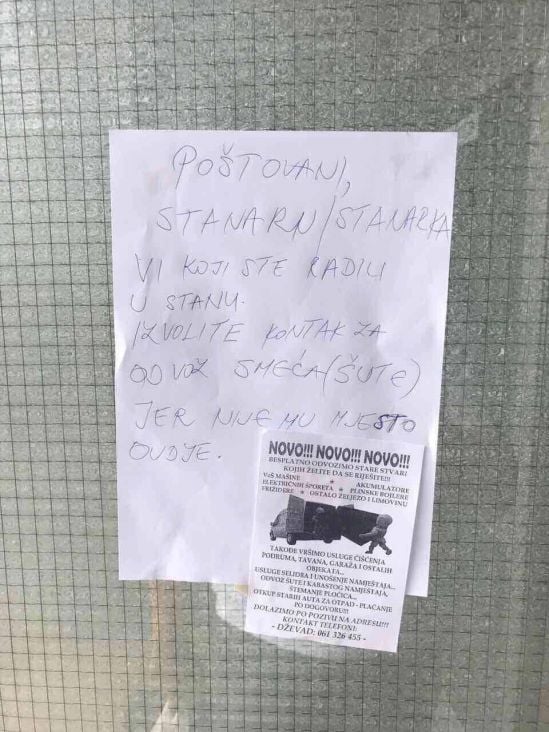 POŠTOVANI,
STANARN/STANARKA
VI KOJI STE RADILI
U STANU.
IZVOLITE KONTAK ZA
ODVOZ SMEĆA (ŠUTE)
JER NIJE MU MJESTO
OVDJE.
NOVO!!! NOVO!!! NOVO!!!
BESPLATNO ODVOZIMO STARE STVARI
KOJIH ŽELITE DA SE RIJEŠITE!!!
VEŠ MAŠINE ★ AKUMULATORE
ELEKTRIČNIH ŠPORETA ★ PLINSKE BOJLERE
FRIŽIDERE ★ OSTALO ŽELJEZO I LIMOVINU
TAKOĐE VRŠIMO USLUGE ČIŠĆENJA
PODRUMA, TAVANA, GARAŽA I OSTALIH
OBJEKATA...
USLUGE SELIDBA I UNOŠENJE NAMJEŠTAJA...
ODVOZ ŠUTE I KABASTOG NAMJEŠTAJA,
ŠTEMANJE PLOČICA...
OTKUP STARIH AUTA ZA OTPAD - PLAĆANJE
PO DOGOVORU!!!
DOLAZIMO PO POZIVU NA ADRESU!!!
KONTAKT TELEFONI:
- DŽEVAD: 061 326 455 -